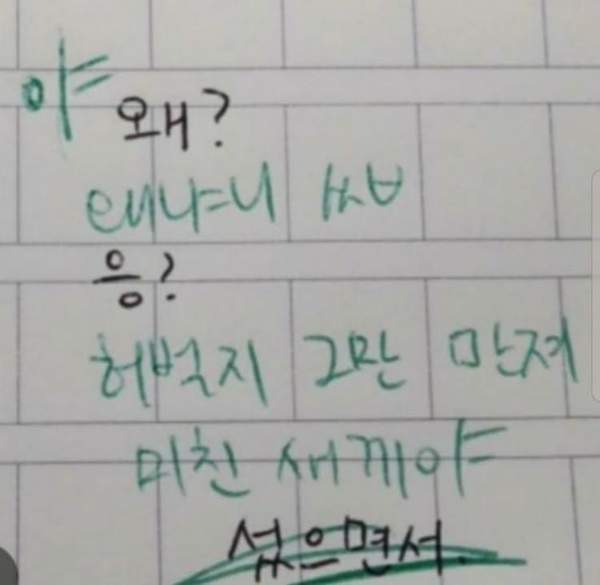 야
왜?
태나니 씨ㅂ
응?
허벅지 그만 만져
미친 새끼야
섰으면서.